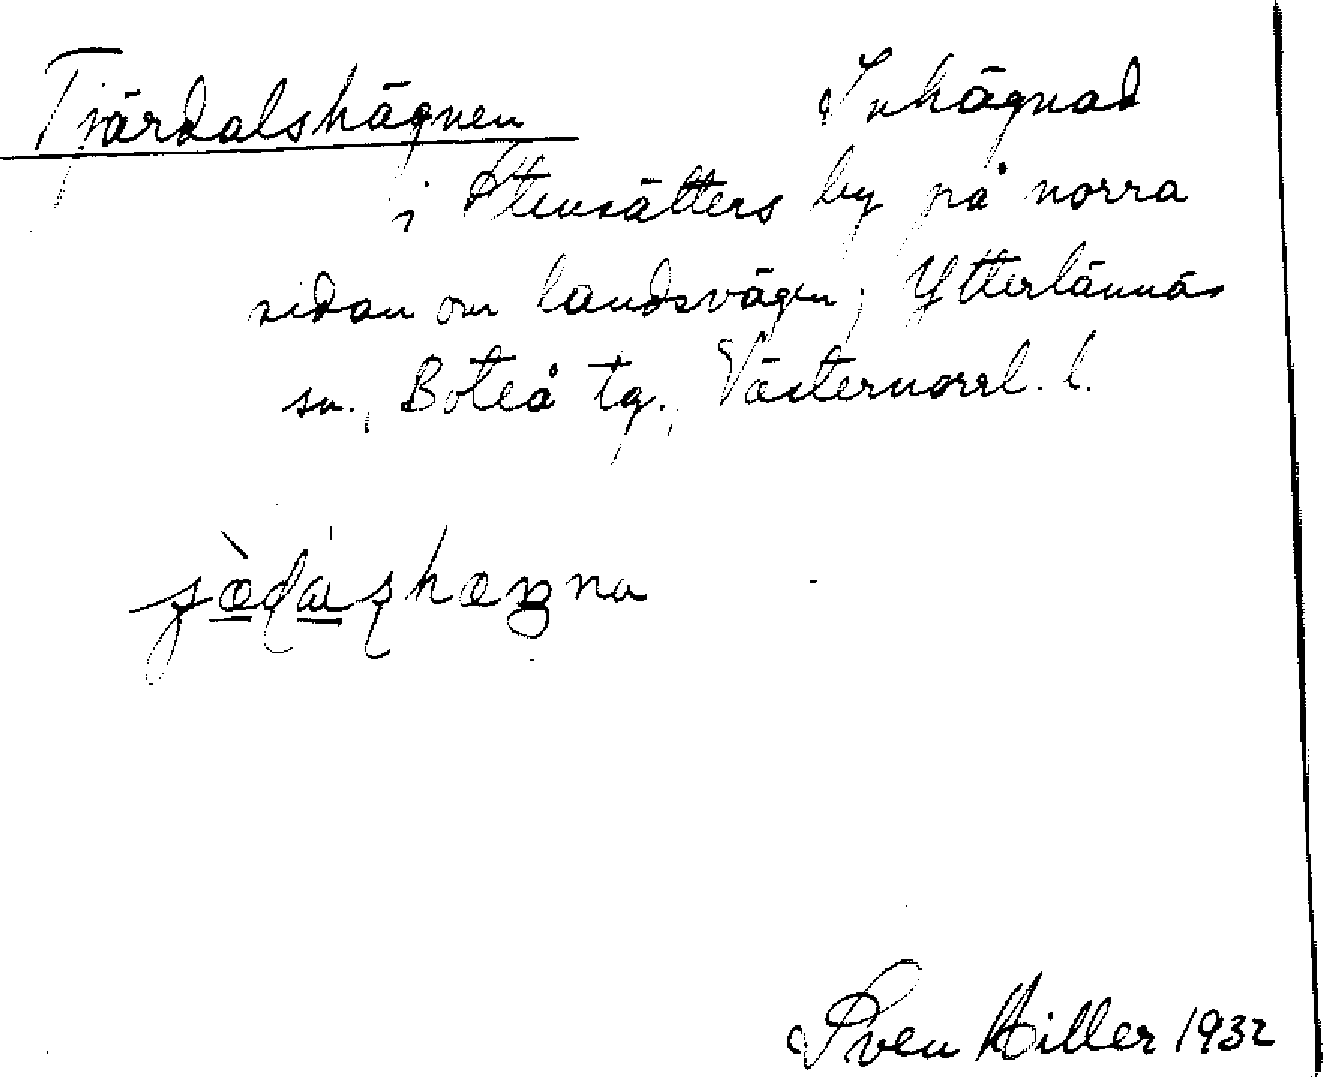 Tjärdalshägnen Inhägnad
i Stensätters by på norra
sidan om landsvägen; Ytterlännäs
sn., Boteå tg., Västernorrl. l.
Sven Hiller 1932